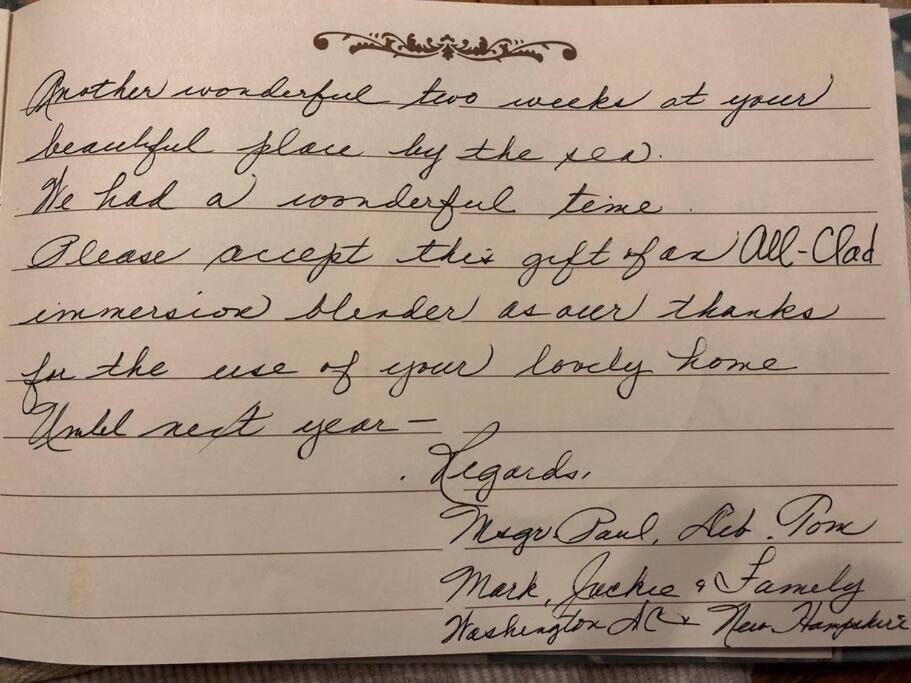 Another wonderful two weeks at your
beautiful place by the sea.
We had a wonderful time.
Please accept this gift of an All-Clad
immersion blender as our thanks
for the use of your lovely home
Until next year—
Regards,
Msgr. Paul, Deb, Tom
Mark, Jackie & Family
Washington DC & New Hampshire